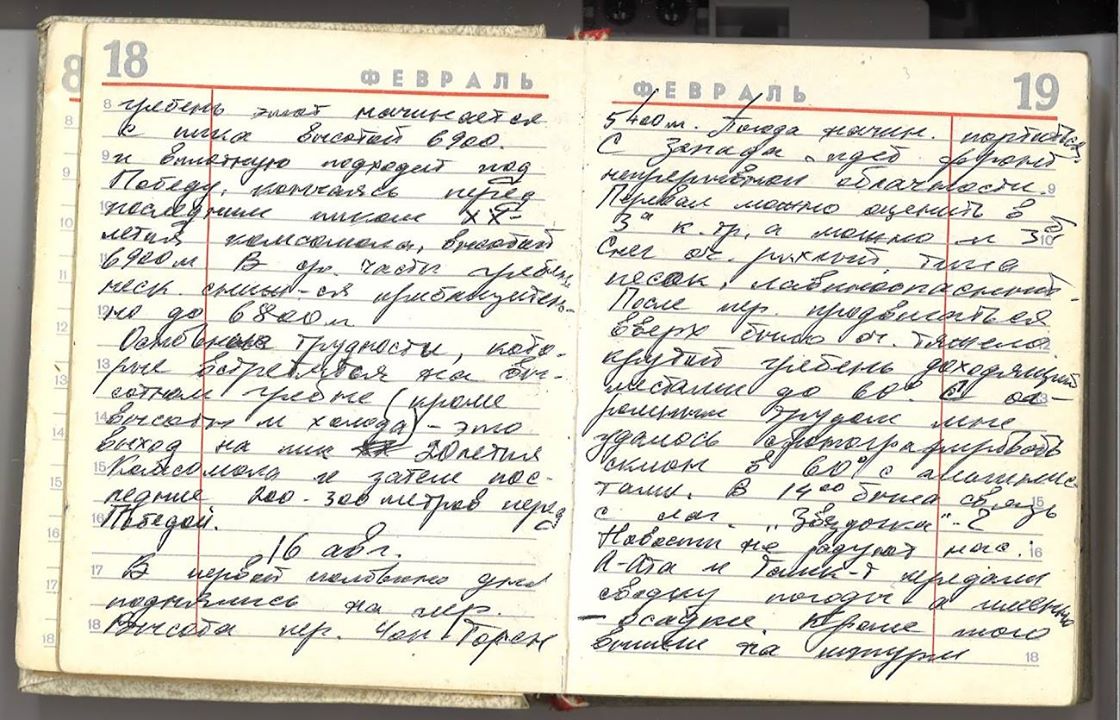 18
ФЕВРАЛЬ
гребень этот начинается
с пика высотой 6900.
и вплотную подходит под
Победу, кончаясь перед
последним пиком XX-
летия комсомола, высотой
6900 м В ср. части гребень
неск. сниж-ся приблизитель-
но до 6800 м
Основные трудности, кото-
рые встретятся на вы-
сотном гребне (кроме
высоты и холода) - это
выход на пик 20летия
Комсомола и затем пос-
ледние 200-300 метров перед
Победой.
16 авг.
В первой половине дня
поднялись на пер.
Высота пер. Чон Торен
ФЕВРАЛЬ
19
5400 м. Погода начин. портиться,
С запада идет фронт
непрерывной облачности.
Перевал можно оценить в
3а к.тр, а можно и 3б
Снег оч. рыхлый, типа
песок, лавиноопасный.
После пер. продвигаться
вверх было оч. тяжело
крутой гребень доходящий
местами до 60°. С ог-
ромным трудом мне
удалось сфотографировать
склон в 60° с альпинис-
тами. В 14 00 была связь
с лаг. „Звездочка"-2
Новости не радуют нас.
А-Ата и Ташк-т передали
сводку погоды а именно
- осадки Кроме того
вышли на штурм